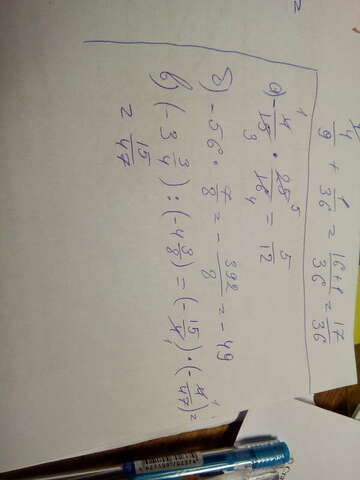 4/9 + 1/36 = 16+1/36 = 17/36
а) - 4/15 · 25/16 = 5/12
б) - 56 · 7/8 = - 392/8 = - 49
в) (- 3 3/4) : (- 4 3/8) = (- 15/4) · (- 4/47) =
= 15/47